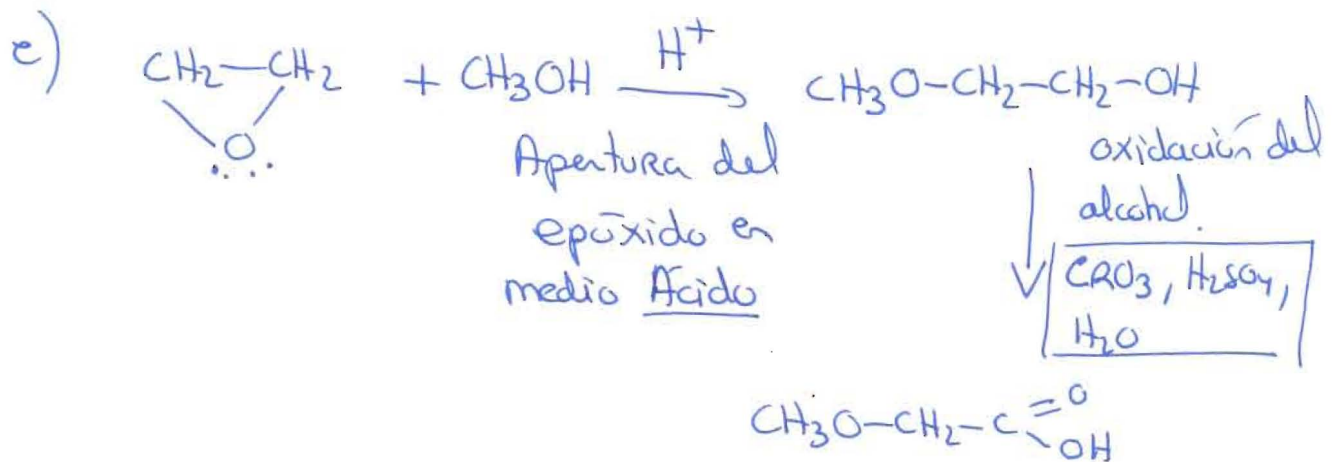 e)
CH2-CH2 + CH3OH H+ → CH3O-CH2-CH2-OH
O
Apertura del
epóxido en
medio Ácido
oxidación del
alcohol.
CRO3, H2SO4,
H2O
CH3O-CH2-C=O
OH